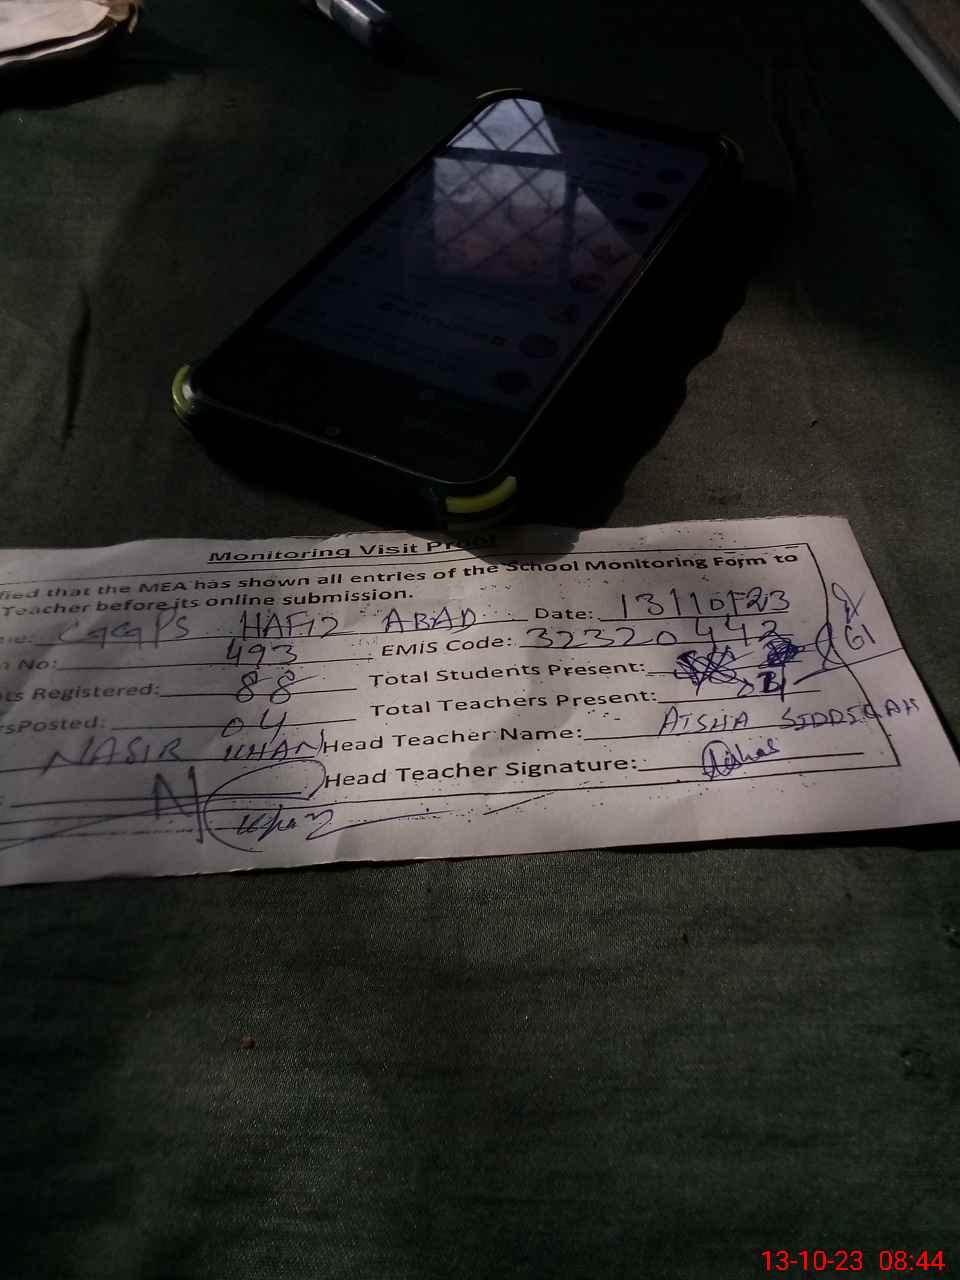 Monitoring Visit Proof
fied that the MEA has shown all entries of the School Monitoring Form to
Teacher before its online submission.
me: GGGPS HAFIZ ABAD Date: 13/10/23
n No: 493 EMIS Code: 32320442
ts Registered: 88 Total Students Present: 61
rsPosted: 04 Total Teachers Present:
NASIR KHAN Head Teacher Name: AISHA SIDDIQAH
Head Teacher Signature:
13-10-23 08:44